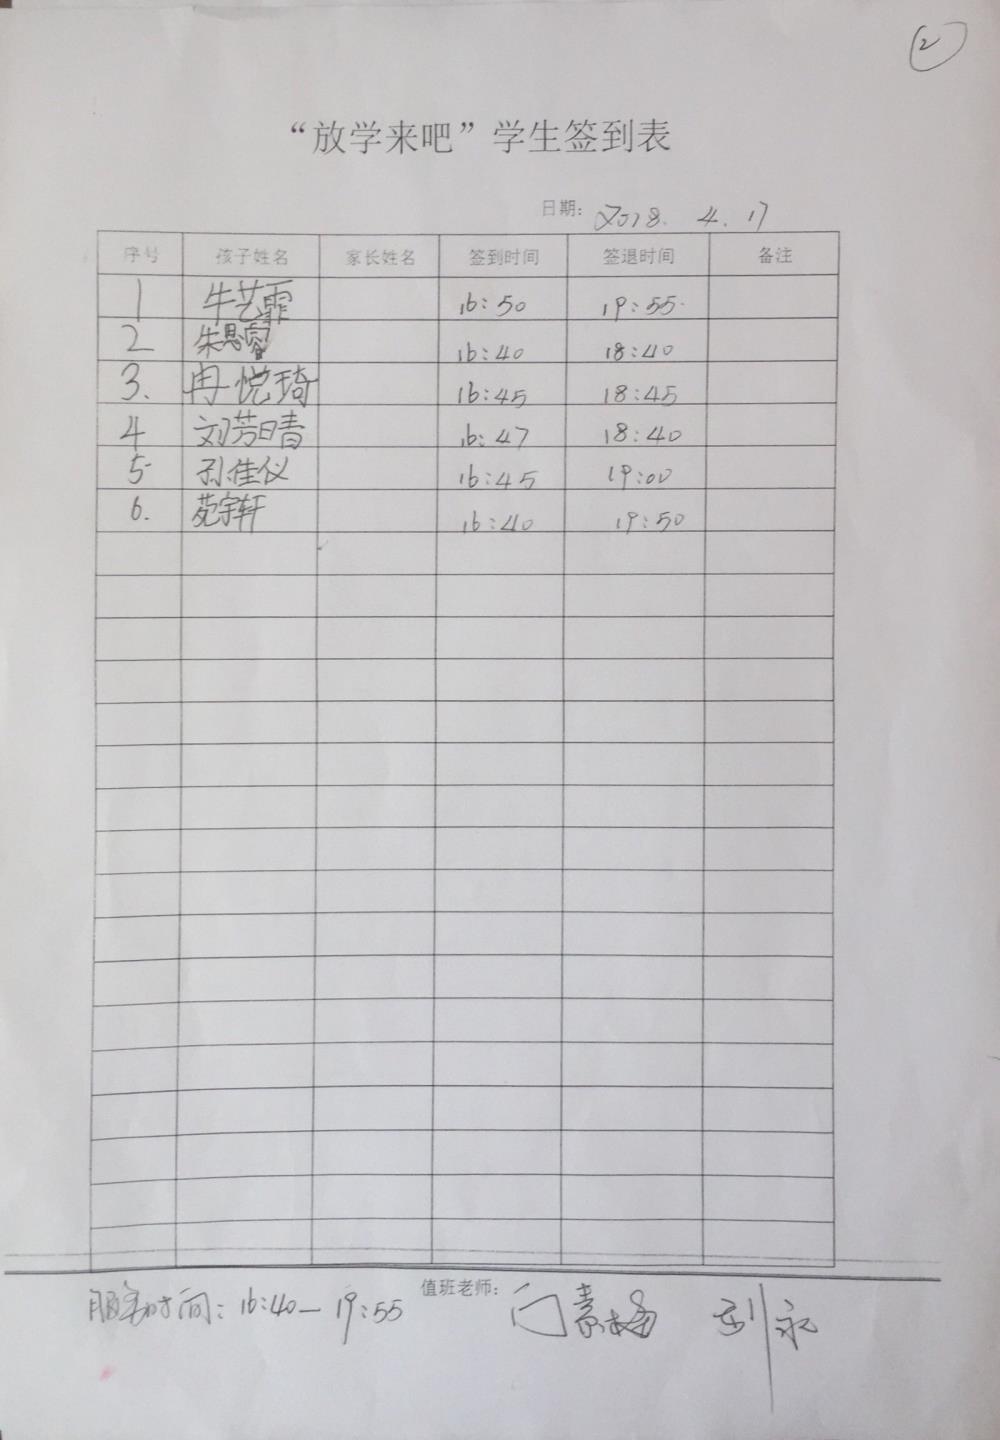 ②
“放学来吧”学生签到表
日期: 2018. 4. 17
序号 孩子姓名 家长姓名 签到时间 签退时间 备注
1 牛艺霏 16:50 19:55
2 朱思睿 16:40 18:40
3. 冉悦琦 16:45 18:45
4 刘芳晴 16:47 18:40
5 孙佳仪 16:45 19:00
6. 苑宇轩 16:40 19:50
值班老师:
服务时间: 16:40—19:55 门素梅 刘永